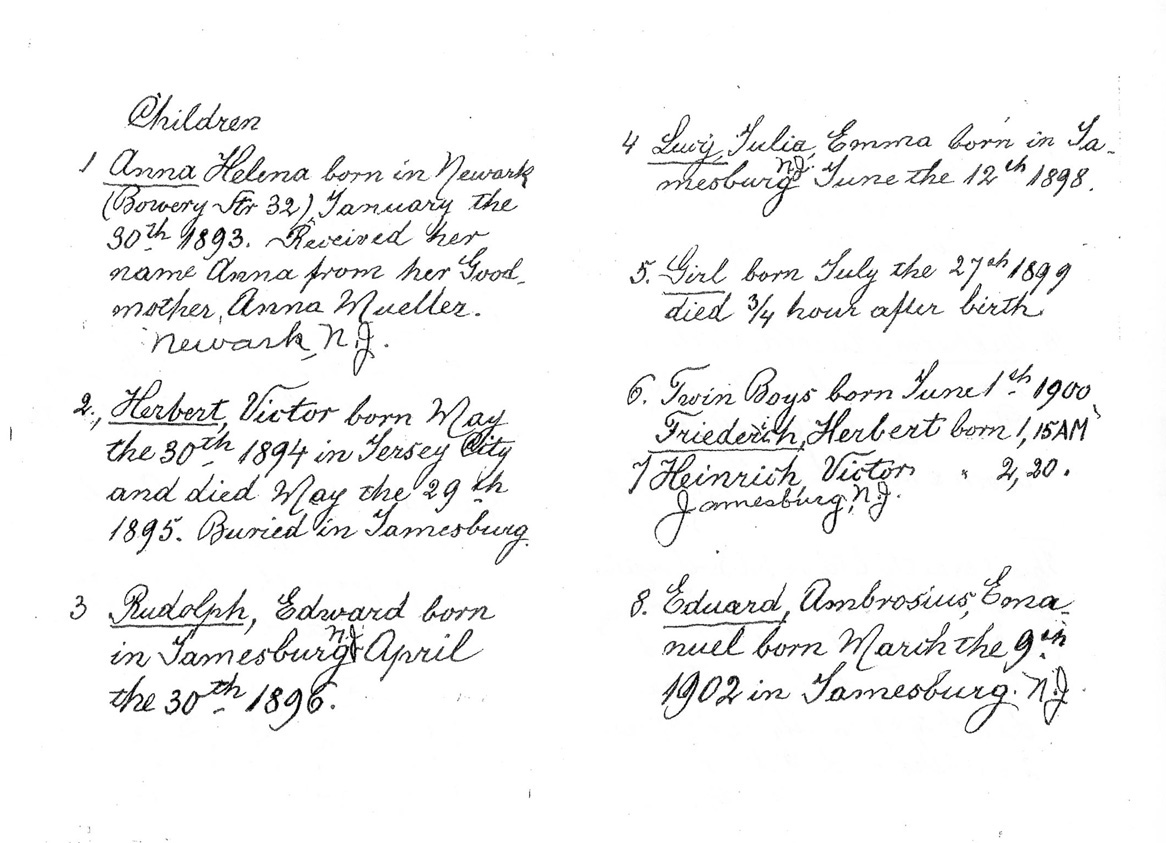 Children
1 Anna Helena born in Newark
(Bowery Str 32), January the
30th 1893. Received her
name Anna from her Good-
mother, Anna Mueller.
Newark, N.J.
2., Herbert, Victor born May
the 30th 1894 in Jersey City
and died May the 29th
1895. Buried in Jamesburg.
3 Rudolph, Edward born
in Jamesburg N.J. April
the 30th 1896.
4 Lucy, Julia, Emma born in Ja-
mesburg N.J. June the 12th 1898.
5. Girl born July the 27th 1899
died 3/4 hour after birth
6. Twin Boys born June 1th 1900
Friederich, Herbert born 1,15AM
7 Heinrich, Victor " 2,20.
Jamesburg, N.J.
8. Eduard, Ambrosius, Ema-
nuel born March the 9th
1902 in Jamesburg. N.J.